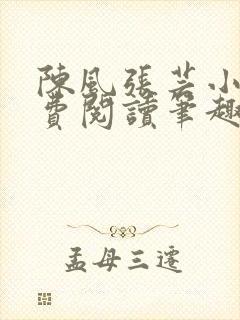 陳風張芸小
費閱讀筆趣
孟母三遷